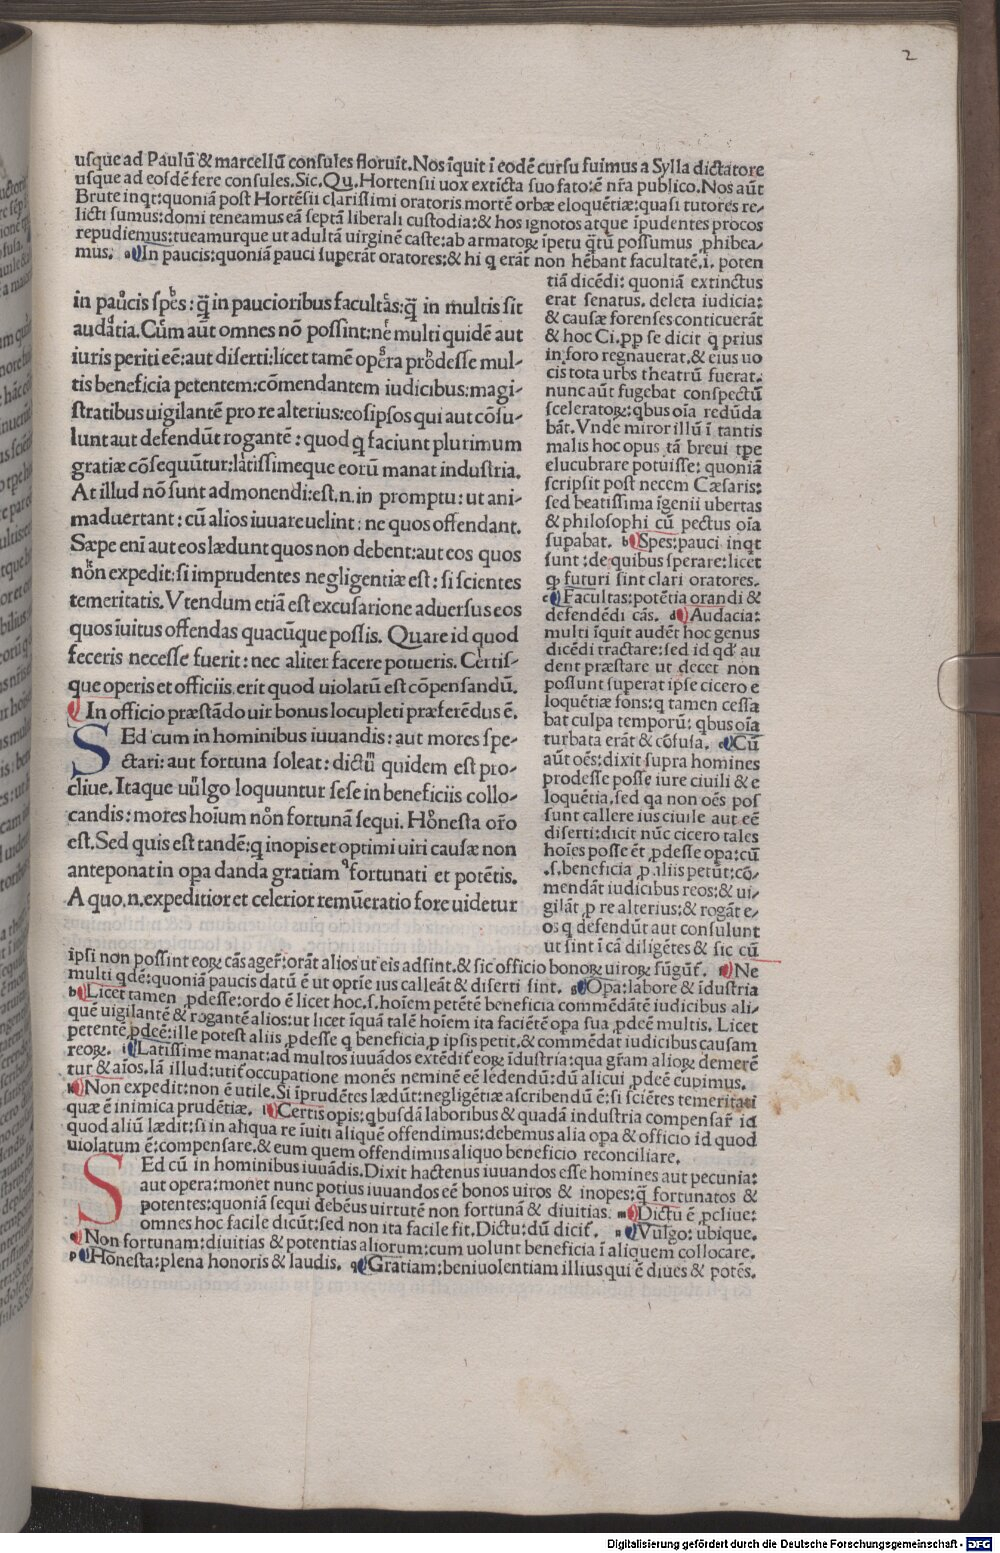 2
uſque ad Paulū & marcellū conſules floruīt. Nos īquit ī eodē curſu fuimus a Sylla dictatore
uſque ad eoſdē fere conſules. Sic. Qu. Hortenſii uox extīcta ſuo fato: ē nr̄a publico. Nos aūt
Brute inqt: quoniā poſt Hortēſii clariſſimi oratoris mortē orbæ eloquētiæ: quaſi tutores re-
licti ſumus: domi teneamus eā ſeptā liberali cuſtodia: & hos ignotos atque īpudentes procos
repudiemus: tueamurque ut adultā uirginē caſte: ab armatoꝝ īpetu q̄tū poſſumus ꝓhibea-
mus. a In paucis: quoniā pauci ſuperāt oratores: & hi q erāt non hēbant facultatē. i. poten
tiā dicēdi: quoniā extinctus
erat ſenatus. deleta iudicia:
& cauſæ forenſes conticuerāt
& hoc Ci. pp ſe dicit q prius
in foro regnauerat. & eius uo
cis tota urbs theatrū fuerat.
nunc aūt fugebat conſpectū
ſceleratoꝝ: qbus oīa redūda
bāt. Vnde miror illū ī tantis
malis hoc opus tā breui tpe
elucubrare potuiſſe: quoniā
ſcripſit poſt necem Cæſaris:
ſed beatiſſima īgenii ubertas
& philoſophi cū pectus oīa
ſupabat. b Spes: pauci inqt
ſunt: de quibus ſperare: licet
ꝙ futuri ſint clari oratores.
c Facultas: potētia orandi &
defendēdi cās. d Audacia:
multi īquit audēt hoc genus
dicēdi tractare: ſed id qd' au
dent præſtare ut decet non
poſſunt ſuperat ipſe cicero e
loquētiæ fons: q tamen ceſſa
bat culpa temporū: qbus oīa
turbata erāt & cōfuſa. e Cū
aūt oēs: dixit ſupra homines
prodeſſe poſſe iure ciuili & e
loquētia. ſed qa non oēs poſ
ſunt callere ius ciuile aut eē
diſerti: dicit nūc cicero tales
hoīes poſſe ēt ꝓdeſſe opa: cū
.ſ. beneficia ꝓ aliis petūt: cō-
mendāt iudicibus reos: & ui-
gilāt ꝓ re alterius: & rogāt e-
os q defendūt aut conſulunt
ut ſint ī cā diligētes & ſic cū
in paucis ſpes: q̄ in paucioribus facultas: q̄ in multis ſit
audatia. Cum aūt omnes nō poſſint: ne multi quidē aut
iuris periti eē: aut diſerti: licet tamē opera prodeſſe mul-
tis beneficia petentem: cōmendantem iudicibus: magi-
ſtratibus uigilantē pro re alterius: eoſipſos qui aut cōſu-
lunt aut defendūt rogantē: quod q faciunt plurimum
gratiæ cōſequūtur: latiſſimeque eorū manat induſtria.
At illud nō ſunt admonendi: eſt. n. in promptu: ut ani-
maduertant: cū alios iuuare uelint: ne quos offendant.
Sæpe enī aut eos lædunt quos non debent: aut eos quos
non expedit: ſi imprudentes negligentiæ eſt: ſi ſcientes
temeritatis. Vtendum etiā eſt excuſatione aduerſus eos
quos īuitus offendas quacūque poſſis. Quare id quod
feceris neceſſe fuerit: nec aliter facere potueris. Certiſ-
que operis et officiis erit quod uiolatū eſt cōpenſandū.
In officio præſtādo uir bonus locupleti præferēdus ē.
SEd cum in hominibus iuuandis: aut mores ſpe-
ctari: aut fortuna ſoleat: dictu quidem eſt pro-
cliue. Itaque uulgo loquuntur ſeſe in beneficiis collo-
candis: mores hoīum non fortunā ſequi. Honeſta or̄o
eſt. Sed quis eſt tandē: q inopis et optimi uiri cauſæ non
anteponat in opa danda gratiam fortunati et potētis.
A quo. n. expeditior et celerior remūeratio fore uidetur
ipſi non poſſint eoꝝ cās ager̄: orāt alios ut eis adſint. & ſic officio bonoꝝ uiroꝝ fūgūt̄. f Ne
multi qdē: quoniā paucis datū ē ut optīe ius calleāt & diſerti ſint. g Opa: labore & īduſtria
h Licet tamen ꝓdeſſe: ordo ē licet hoc. ſ. hoīem petētē beneficia commēdātē iudicibus ali-
quē uigilantē & rogantē alios: ut licet īquā talē hoīem ita faciētē opa ſua ꝓdeē multis. Licet
petentē ꝓdeē: ille poteſt aliis ꝓdeſſe q beneficia ꝓ ipſis petit. & commēdat iudicibus cauſam
reoꝝ. i Latiſſime manat: ad multos iuuādos extēdit̄ eoꝝ īduſtria: qua gr̄am alioꝝ demerē
tur & aīos. lā illud: utit̄ occupatione monēs neminē eē lēdendū: dū alicui ꝓdeē cupimus.
k Non expedit: non ē utile. Si īprudētes lædūt: negligētiæ aſcribendū ē: ſi ſciētes temeritati
quæ ē inimica prudētiæ. l Certis opis: qbuſdā laboribus & quadā induſtria compenſar̄ id
quod aliū lædit: ſi in aliqua re īuiti aliquē offendimus: debemus alia opa & officio id quod
uiolatum ē: compenſare. & eum quem offendimus aliquo beneficio reconciliare.
SEd cū in hominibus iuuādis. Dixit hactenus iuuandos eſſe homines aut pecunia:
aut opera: monet nunc potius iuuandos eē bonos uiros & inopes: q̄ fortunatos &
potentes: quoniā ſequi debēus uirtutē non fortunā & diuitias. m Dictu ē ꝓcliue:
omnes hoc facile dicūt: ſed non ita facile fit. Dictu: dū dicit̄. n Vulgo: ubique.
o Non fortunam: diuitias & potentias aliorum: cum uolunt beneficia ī aliquem collocare.
p Honeſta: plena honoris & laudis. q Gratiam: beniuolentiam illius qui ē diues & potēs.
Digitalisierung gefördert durch die Deutsche Forschungsgemeinschaft - DFG